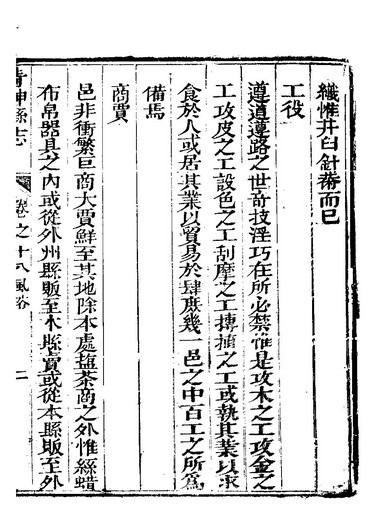 織惟井臼針黹而已
工役
遵道遵路之世奇技淫巧在所必禁惟是攻木之工攻金之
工攻皮之工設色之工刮摩之工摶埴之工或執其業以求
食於人或居其業以貿易於肆庶幾一邑之中百工之所爲
備焉
商賈
邑非衝繁巨商大賈鮮至其地除本處塩茶商之外惟絲蜡
布帛器具之內或從外州縣販至本縣賣或從本縣販至外
青神縣志
卷之十八風俗
二